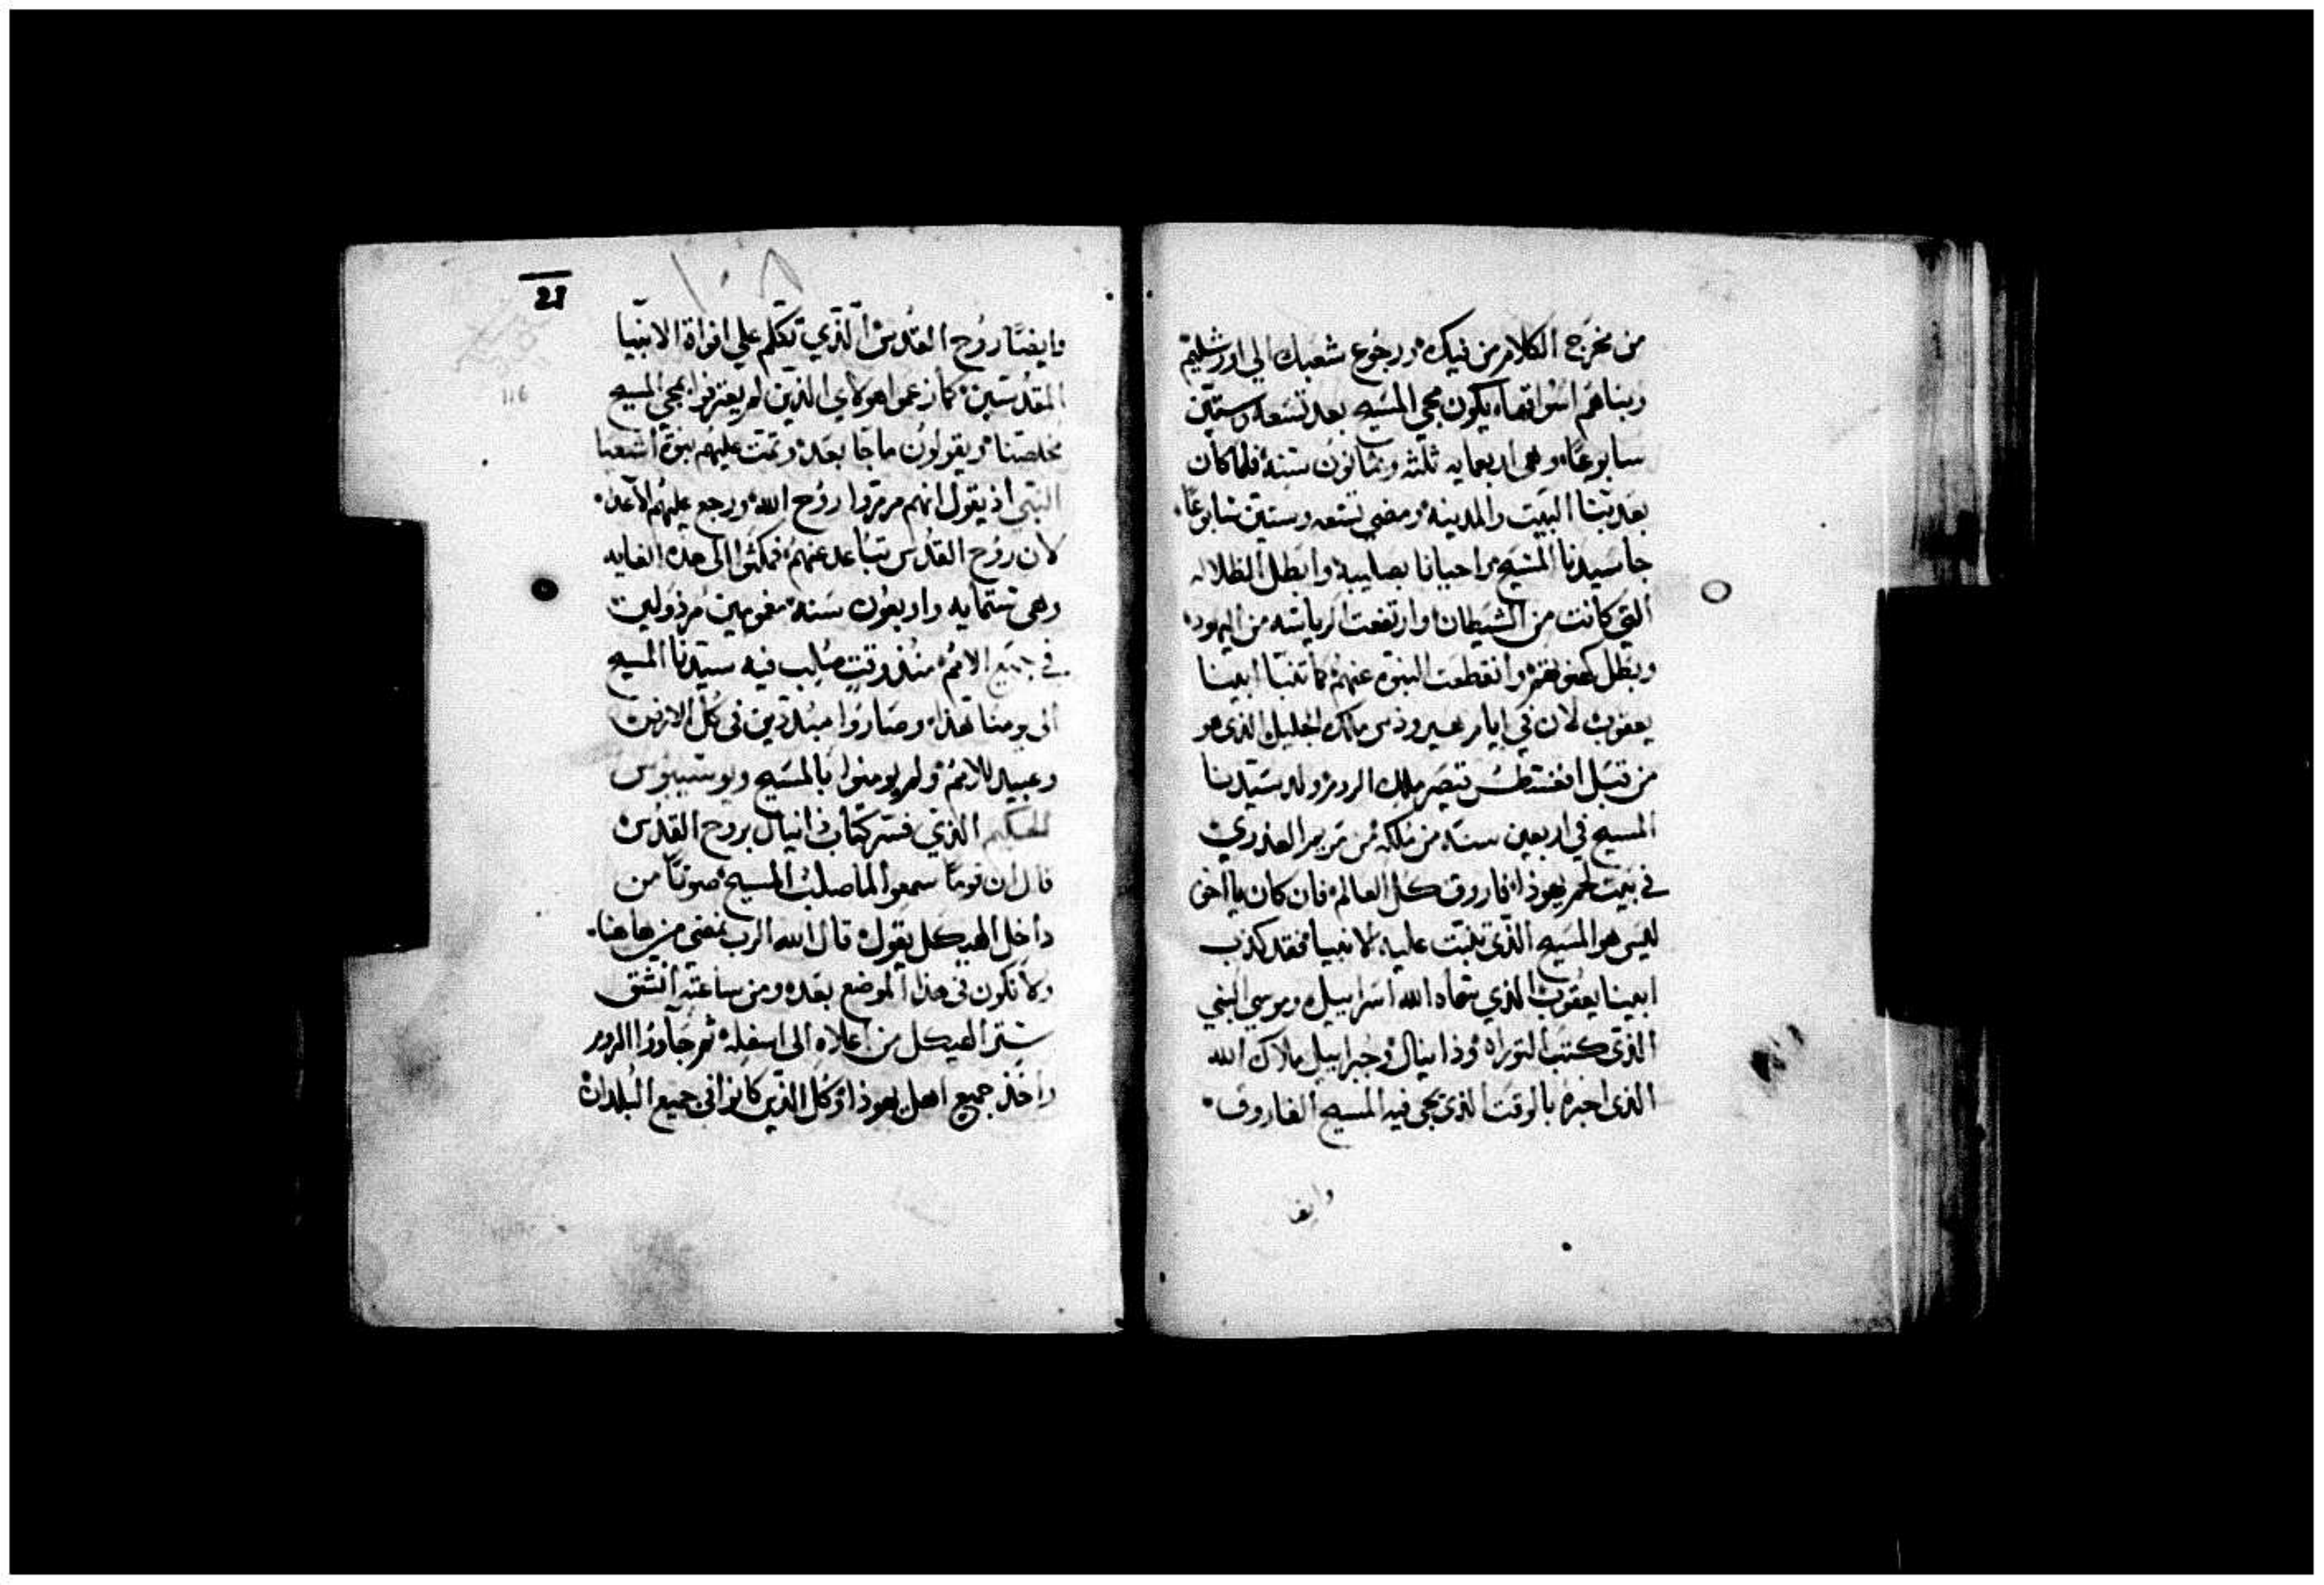 من مخرج الكلام من فيك ورجوع شعبك الي اورشليم
وبناهم اسواقها يكون مجي المسيح بعد تسعه وستين
سابوعًا وهى اربعمايه ثلثه وثمانون سنة فلما كان
بعد بنا البيت والمدينه ومضي تسعه وستين سابوعًا
جا سيدنا المسيح واحيانا بصليبه وابطل الظلاله
التي كانت من الشيطان وارتفعت الرياسه من اليهود
وبطل وانقطعت النبوه عنهم كما تنبا ابينا
يعقوب لان في ايام هيرودس ملك الجليل الذي هو
من قبل اغسطس قيصر ملك الروم ولد سيدنا
المسيح في اربعين سنة من ملكه من مريم العذري
في بيت لحم يهوذا فاروق كل العالم فان كان يااخى
ليس هو المسيح الذي تنبت عليه الانبيا فقد كذب
ابينا يعقوب الذي سماه الله اسراييل وموسي النبي
الذي كتب التوراه وذانيال وجبراييل ملاك الله
الذى اخبره بالوقت الذي يجى فيه المسيح الفاروق
وايضا
١٠٨
21
116
وايضًا روح القدس الذي تكلم علي افواة الانبيا
المقدسين كما زعموا هولاي الذين لم يعترفوا بمجي المسيح
مخلصنا ويقولون ما جا بعد وتمت عليهم نبوة اشعيا
النبي اذ يقول انهم مرمروا روح الله ورجع عليهم الاعدا
لان روح القدس تباعد عنهم فمكثوا الى هذه الغايه
وهى ستمايه واربعون سنة مغمومين مرذولين
في جميع الامم منذ وقت صلب فيه سيدنا المسيح
الى يومنا هذا وصاروا مبددين فى كل الارض
وعبيد للامم ولم يومنوا بالمسيح ويوسيبوس
الحكيم الذي فسر كتاب ذانيال بروح القدس
قال ان قومًا سمعوا لما صلب المسيح صوتًا من
داخل الهيكل يقول قال الله الرب نمضي من هاهنا
ولا نكون فى هذا الموضع بعده ومن ساعته انشق
ستر الهيكل من اعلاه الى اسفله ثم جاووا الروم
واخذ جميع اهل يهوذا وكل الذين كانوا في جميع البلدان